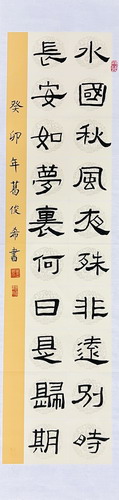 水國秋風夜殊非遠別時
長安如夢裏何日是歸期
癸卯年葛俊希書